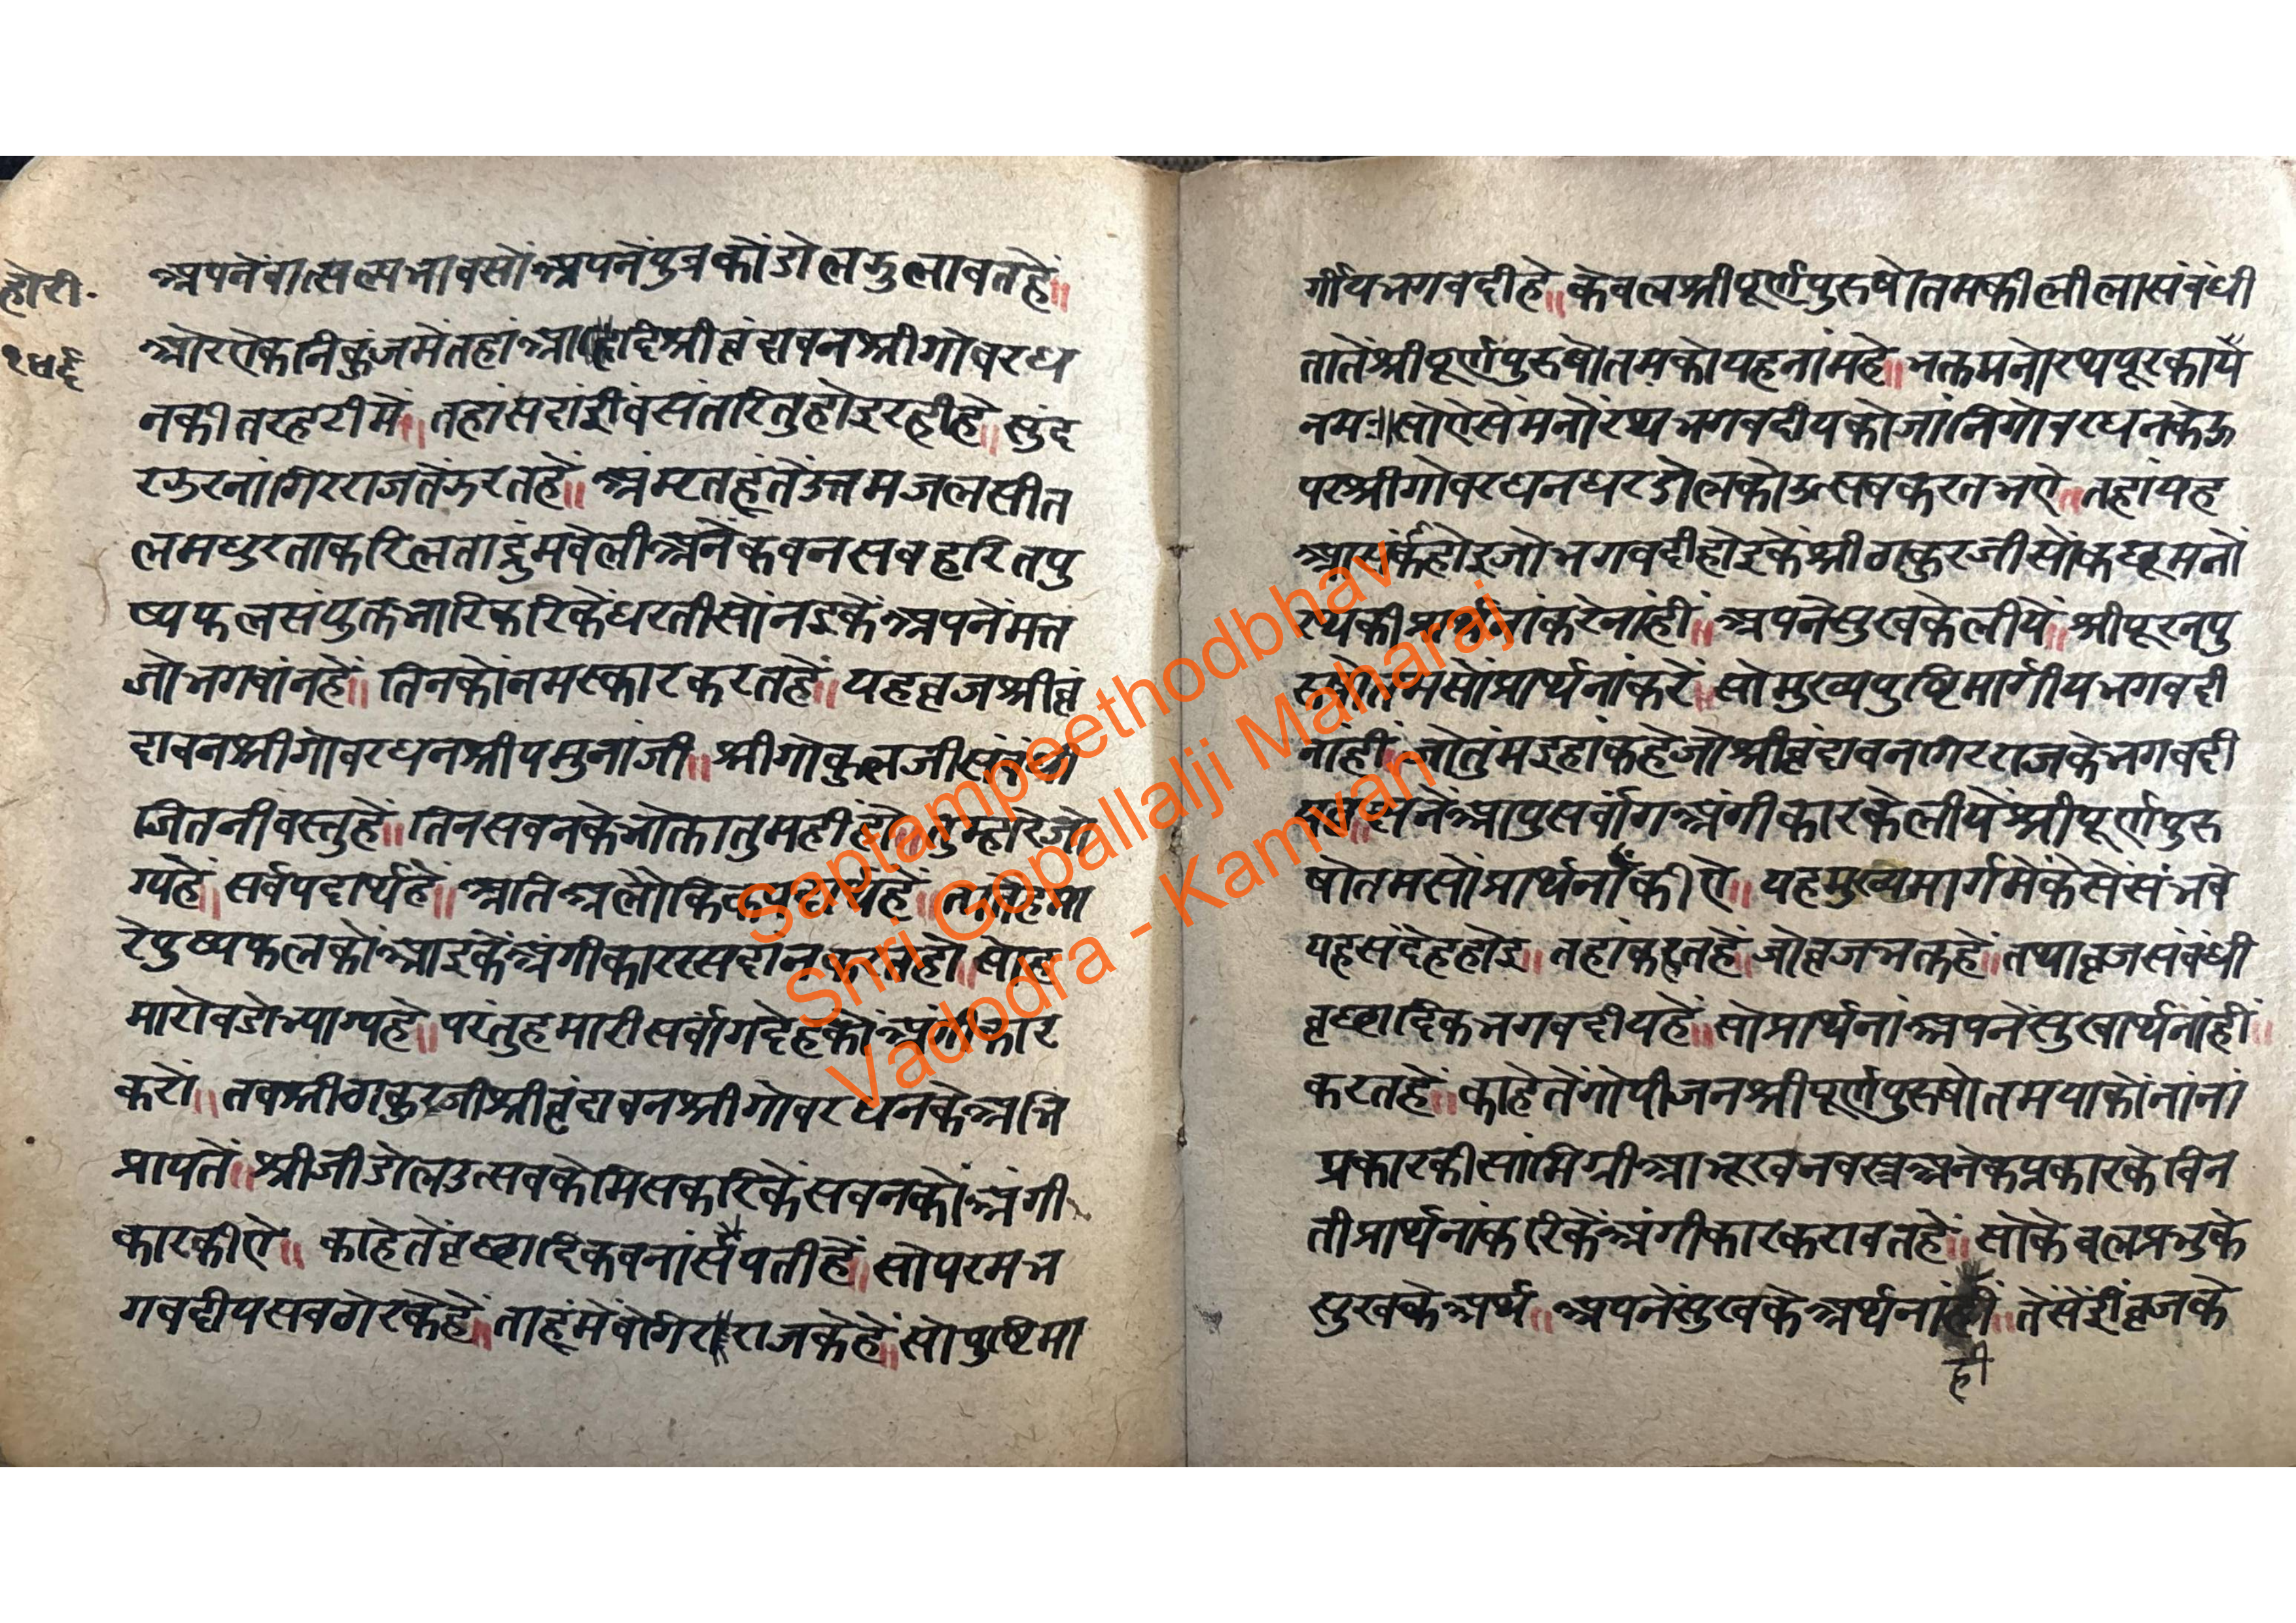 होरी.
१४६
अपनेंवात्सल्यभावसोंअपनेंपुत्रकोंडोलझुलावतहें॥
ओरऐकनिकुंजमेंतहांआदिश्रीवृंदावनश्रीगोवरध
नकीतरहटीमें॥तहांसदांहीवसंतरितुहोइरहीहे॥सुंद
रझरनांगिरराजतेंझरतहें॥अंमरतहूंतेंउत्तमजलसीत
लमधुरताकरिलताद्रुंमवेलीअनेंकवनसवहरितपु
ष्पफलसंयुक्तभारिकरिकेंधरतीसोंनइकेंअपनेंमत्त
जोभगवांनहें॥तिनकोंनमस्कारकरतहें॥यहवृजश्रीवृं
दावनश्रीगोवरधनश्रीयमुनांजी॥श्रीगोकुलजीसंबंधी
जितनीवस्तुहें॥तिनसवनकेभोक्तातुमहींहो॥तुम्हारेजो
ग्यहें॥सर्वपदार्थहें॥अतिअलौकिक
रेपुष्पफलकोंआइकेंअंगीकाररसदांनकरतहो॥सोह
मारोवडोभाग्यहे॥परंतुहमारीसर्वांगदेहकोंअंगीकार
करो॥तवश्रीठाकुरजीश्रीवृंदावनश्रीगोवरधनकेअभि
प्रायतें॥श्रीजीडोलउत्सवकेमिसकरिकेंसवनकोंअंगी
कारकीऐ॥काहेतेंवृक्षादिकवनांसपतीहें॥सोपरमभ
गवदीयसवठोरकेहें॥ताहूंमेंवोगिरराजकेहें॥सोपुष्टिमा
र्गीयभगवदीहे॥केवलश्रीपूर्णपुरुषोतमकीलीलासंबंधी
तातेंश्रीपूर्णपुरुषोतमकोयहनांमहे॥भक्तमनोरथपूरकायै
नमः॥सोऐसेंमनोरथभगवदीयकोजांनिगोवरधनकेऊ
परश्रीगोवरधनधरडोलकोऊसवकरतभऐ॥तहांयह
आसंकाहोइजोभगवदीहोइकेंश्रीठाकुरजीसोंकछूमनो
रथकीप्रार्थनांकरेनांहीं॥अपनेसुखकेलीयें॥श्रीपूरनपु
रुषोतमसोंप्रार्थनांकरें॥सोमुख्यपुष्टिमार्गीयभगवदी
नांहीं॥तोतुंमइहांकहेजोश्रीवृंदावनगिरराजकेभगवदी
नेंआपुसर्वांगअंगीकारकेलीयेंश्रीपूर्णपुरु
षोतमसोंप्रार्थनांकीऐ॥यहमुख्यमार्गमेंकेसेंसंभवे
यहसंदेहहोइ॥तहांकहतहें॥जोवृजभक्तहें॥तथावृजसंबंधी
वृक्षादिकभगवदीयहें॥सोप्रार्थनांअपनेंसुखार्थनांहीं॥
करतहें॥काहेतेंगोपीजनश्रीपूर्णपुरुषोतमयाकोंनांनां
प्रकारकीसांमिग्रीआभूखनवस्त्रअनेकप्रकारकेविन
तीप्रार्थनांकरिकेंअंगीकारकरावतहें॥सोकेवलप्रभुके
सुखकेअर्थ॥अपनेंसुखकेअर्थनांहीं॥तेंसेंहींवृजके
ही
Saptampeethodbhav
Shri Gopallalji Maharaj
Vadodra - Kamvan